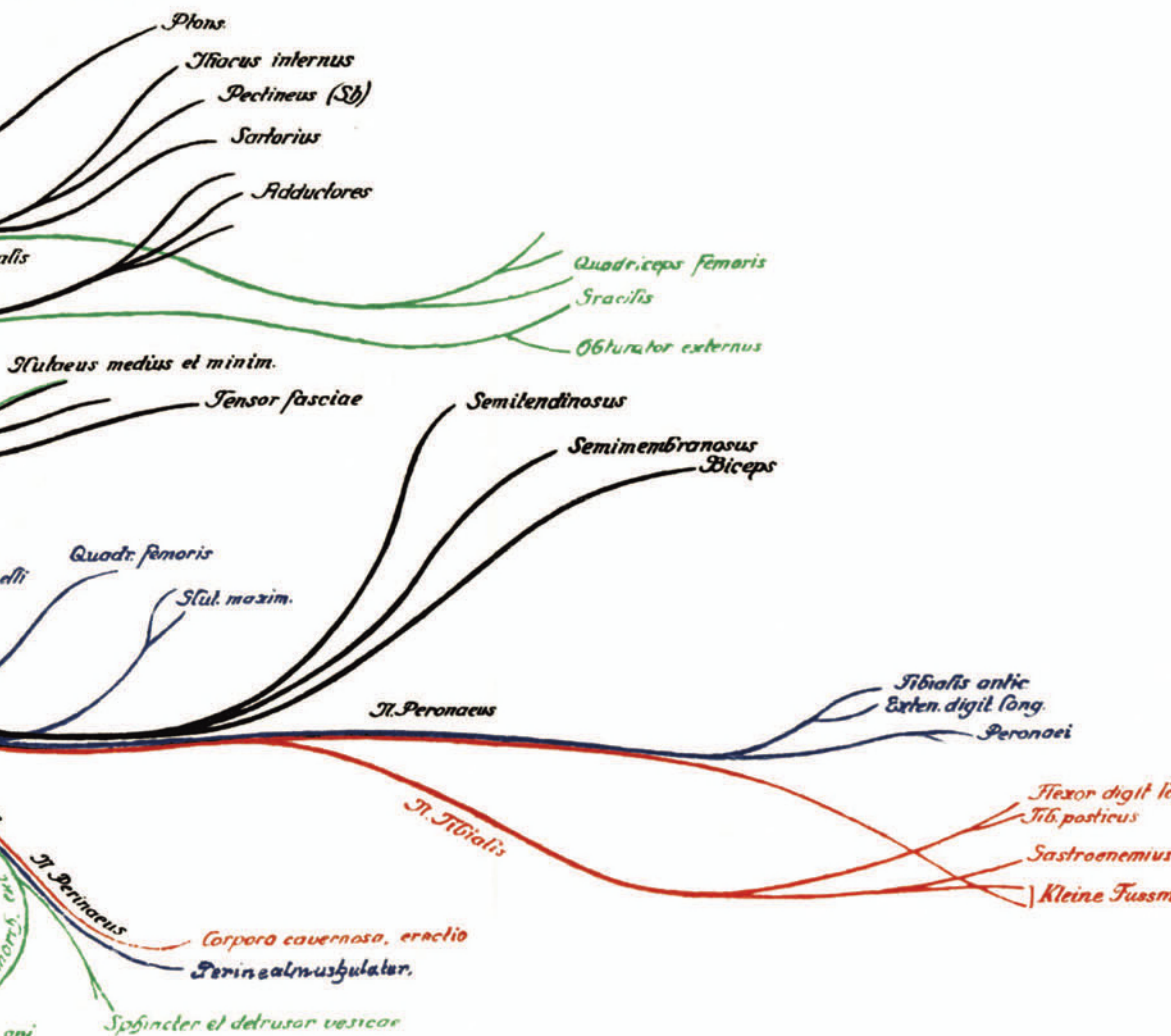 Plons.
Ihacus internus
Pectineus (Sh)
Sartorius
Adductores
alis
Quadriceps femoris
Gracilis
Obturator externus
Glutaeus medius et minim.
Tensor fasciae
Semitendinosus
Semimembranosus
Biceps
Quadr. femoris
elli
Glut. maxim.
Tibialis antic
Exten. digit long.
N. Peronaeus
Peronaei
Flexor digit lo
Tib. posticus
N. Tibialis
Gastroenemius
Kleine Fussm
N. Perinaeus
Corpora cavernosa, erectio
Perinealmuskulatur.
Sphincter et detrusor vesicae
ani